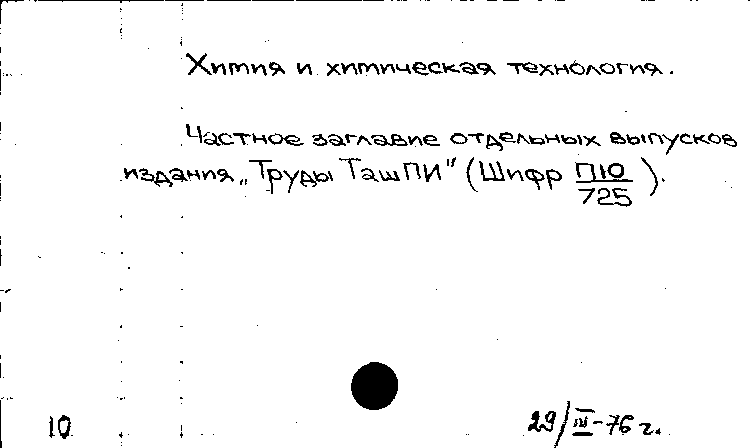 Химия и химическая технология.
Частное заглавие отдельных выпусков
издания „Труды ТашПИ" (Шифр П10/725).
10
29/III-76 г.